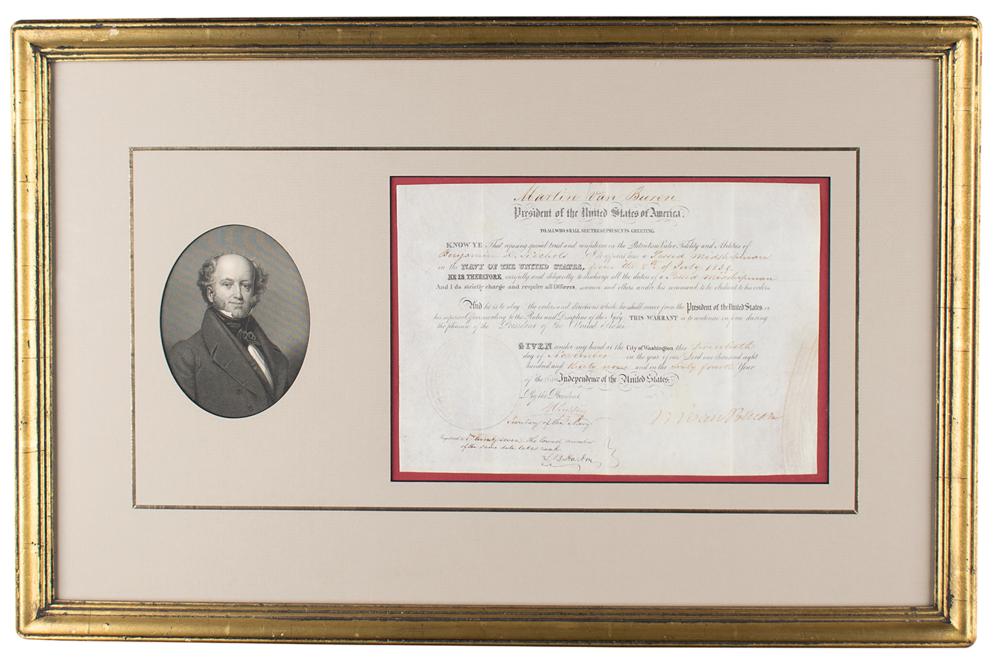 Martin Van Buren
President of the United States of America,
TO ALL WHO SHALL SEE THESE PRESENTS, GREETING.
KNOW YE That reposing special trust and confidence in the Patriotism, Valor, Fidelity and Abilities of
Benjamin S. I appoint him a Passed Midshipman
in the NAVY OF THE UNITED STATES, from the 8th of July 1839
HE IS THEREFORE, carefully and diligently to discharge all the duties of a Passed Midshipman
And I do strictly charge and require all Officers, seamen and others under his command, to be obedient to his orders
And he is to obey the orders and directions which he shall receive from the President of the United States or
his superior Officer according to the Rules and Discipline of the Navy. THIS WARRANT is to continue in force during
the pleasure of the President of the United States.
GIVEN under my hand at the City of Washington, this Twentieth
day of November in the year of our Lord one thousand eight
hundred and thirty nine and in the sixty fourth Year
of the Independence of the United States.
By the President
Secretary of the Navy
M Van Buren
Registered The lowest number
of the same date takes rank